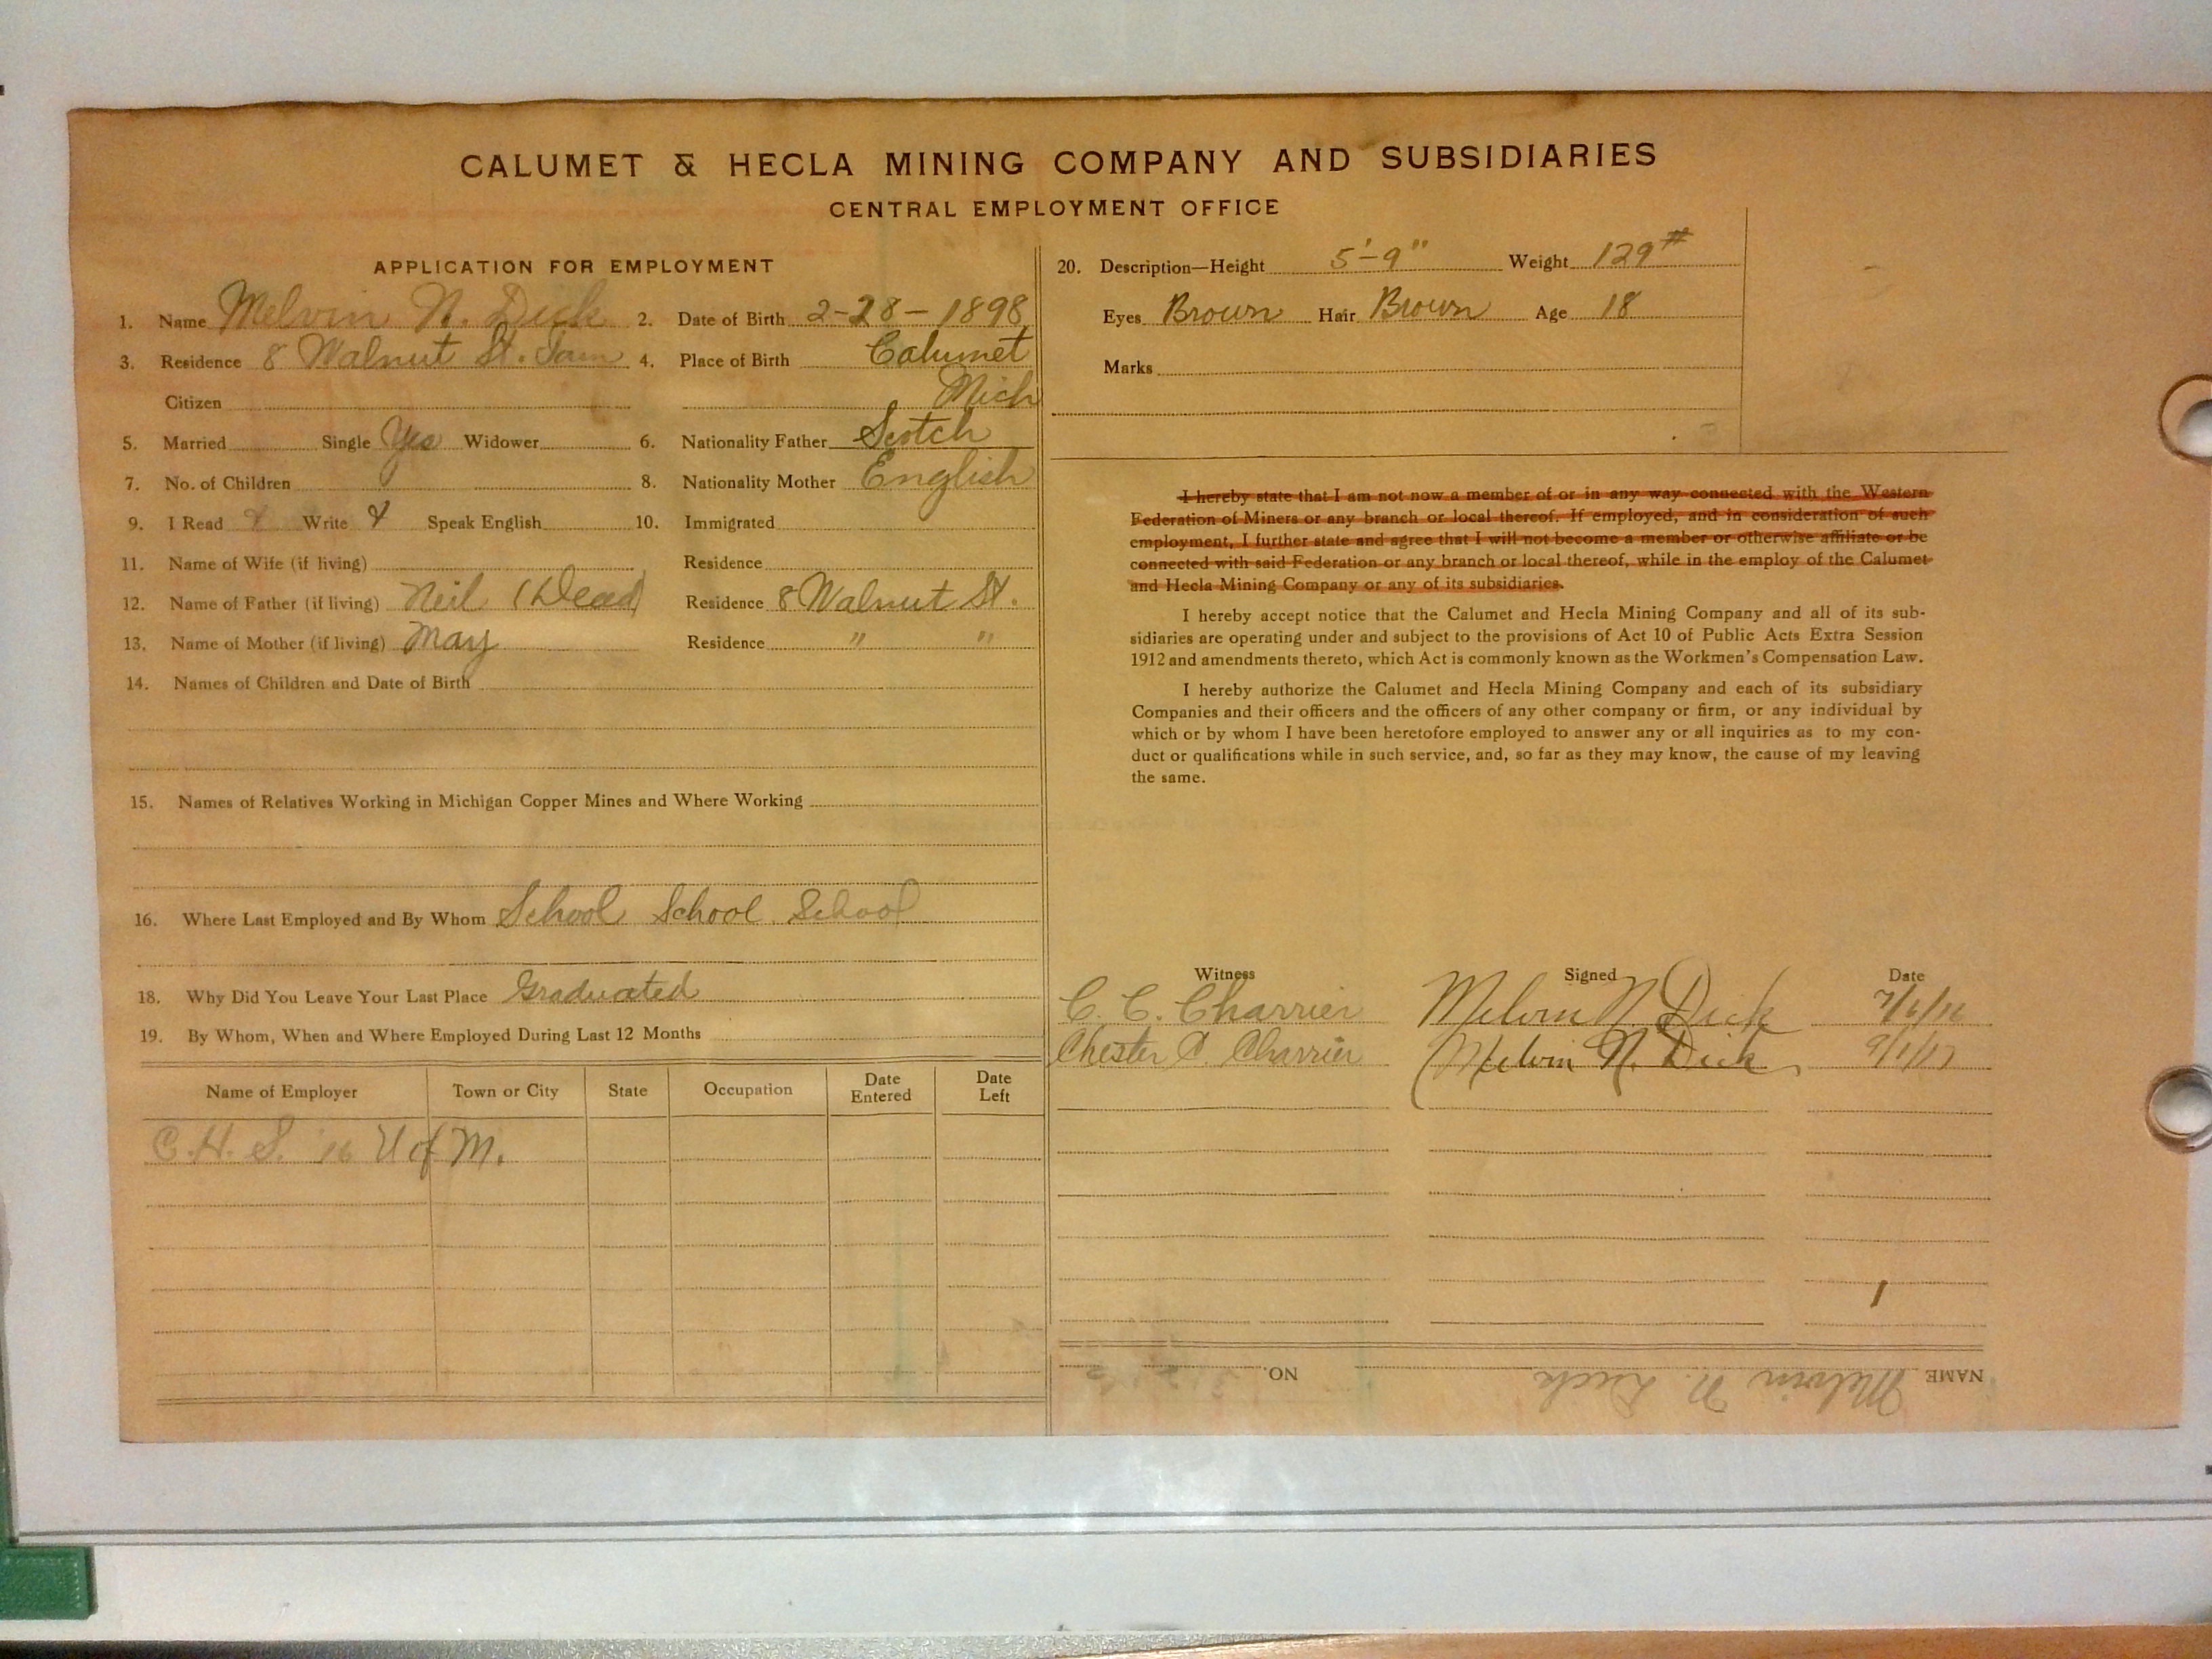 CALUMET & HECLA MINING COMPANY AND SUBSIDIARIES
CENTRAL EMPLOYMENT OFFICE
APPLICATION FOR EMPLOYMENT
1. Name Melvin N. Dick 2. Date of Birth 2-28-1898
3. Residence 8 Walnut St. 4. Place of Birth Calumet
Citizen Mich
5. Married Single Yes Widower 6. Nationality Father Scotch
7. No. of Children 8. Nationality Mother English
9. I Read Write Speak English 10. Immigrated
11. Name of Wife (if living) Residence
12. Name of Father (if living) Neil (Dead) Residence 8 Walnut St.
13. Name of Mother (if living) Mary Residence " "
14. Names of Children and Date of Birth
15. Names of Relatives Working in Michigan Copper Mines and Where Working
16. Where Last Employed and By Whom School School School
18. Why Did You Leave Your Last Place Graduated
19. By Whom, When and Where Employed During Last 12 Months
Name of Employer Town or City State Occupation Date Entered Date Left
C.H.S. '16 U of M.
20. Description—Height 5'-9" Weight 129#
Eyes Brown Hair Brown Age 18
Marks
I hereby state that I am not now a member of or in any way connected with the Western
Federation of Miners or any branch or local thereof. If employed, and in consideration of such
employment, I further state and agree that I will not become a member or otherwise affiliate or be
connected with said Federation or any branch or local thereof, while in the employ of the Calumet
and Hecla Mining Company or any of its subsidiaries.
I hereby accept notice that the Calumet and Hecla Mining Company and all of its sub-
sidiaries are operating under and subject to the provisions of Act 10 of Public Acts Extra Session
1912 and amendments thereto, which Act is commonly known as the Workmen's Compensation Law.
I hereby authorize the Calumet and Hecla Mining Company and each of its subsidiary
Companies and their officers and the officers of any other company or firm, or any individual by
which or by whom I have been heretofore employed to answer any or all inquiries as to my con-
duct or qualifications while in such service, and, so far as they may know, the cause of my leaving
the same.
Witness Signed Date
C. C. Charrier Melvin N. Dick 7/6/16
Chester C. Charrier Melvin N. Dick 9/1/17
NAME Melvin N. Dick NO.